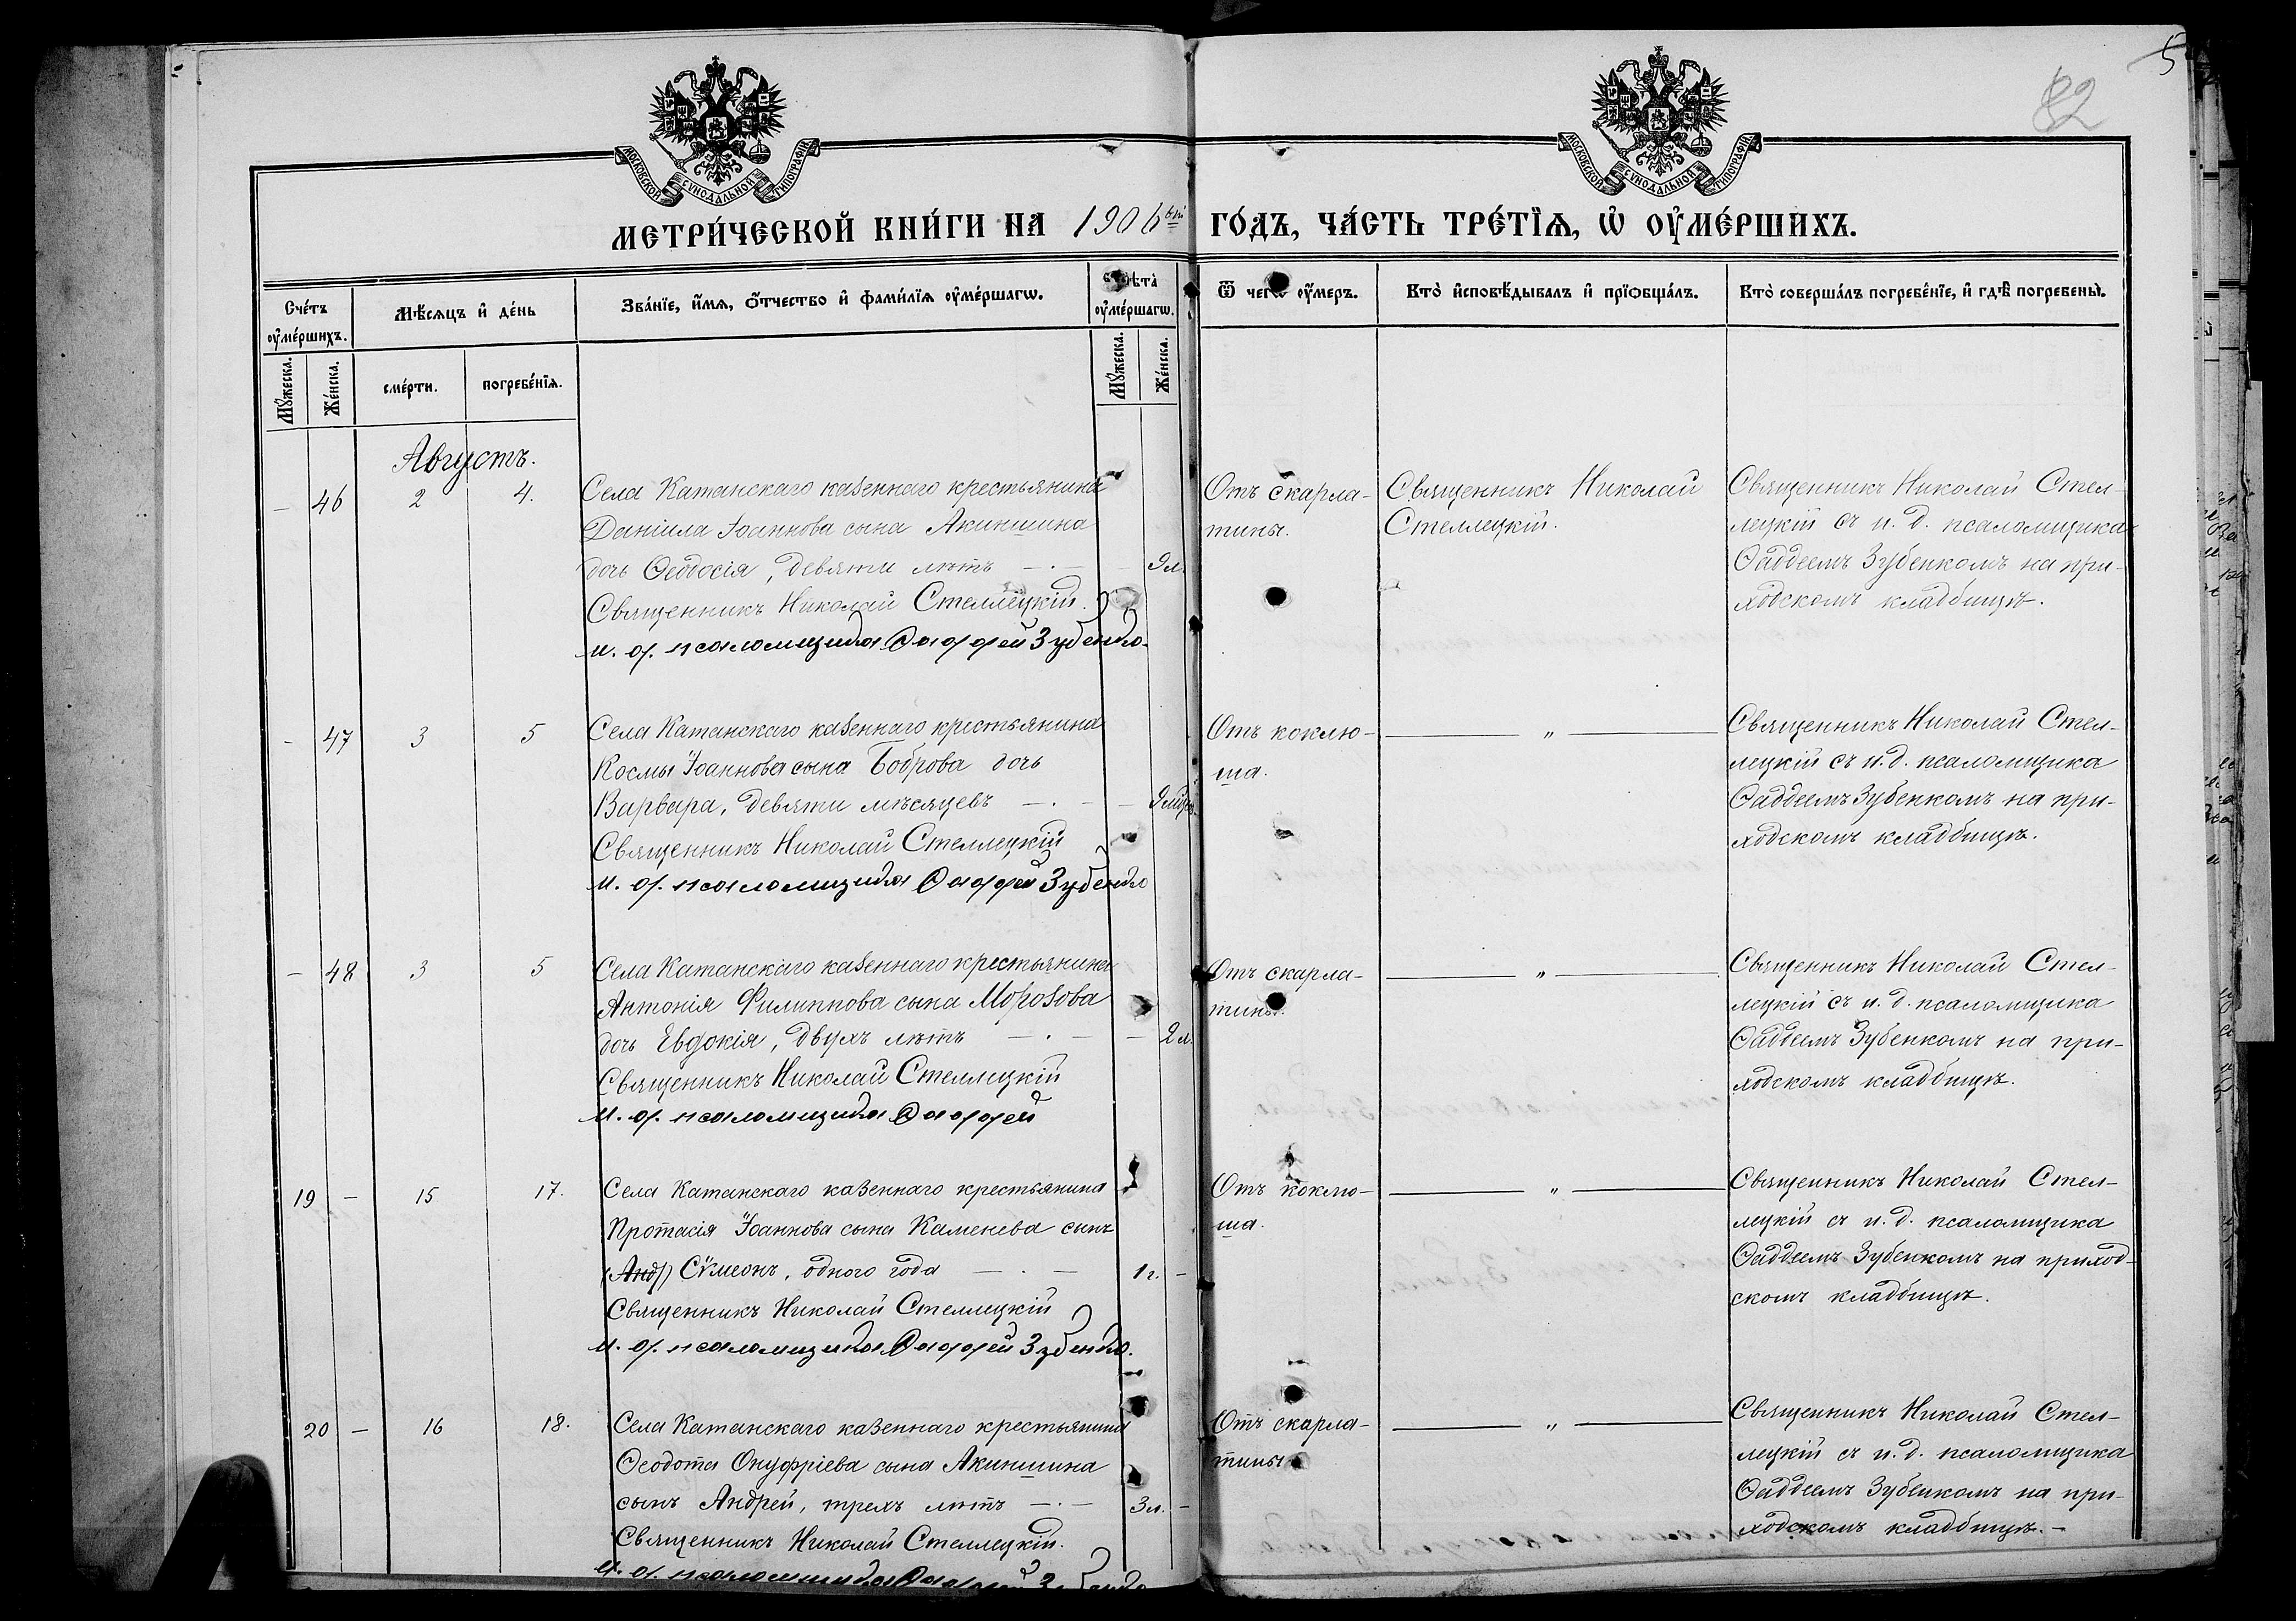 5
82
МОСКОВСКОЙ СѴНОДАЛЬНОЙ ТИПОГРАФІИ
МОСКОВСКОЙ СѴНОДАЛЬНОЙ ТИПОГРАФІИ
МЕТРИ́ЧЕСКОЙ КНИ́ГИ НА 1906 ГО́ДЪ, ЧА́СТЬ ТРЕ́ТЇѦ, Ѡ҆ ОУ҆МЕ́РШИХЪ.
Сче́тъ оу҆ме́ршихъ.
Мѣ́сѧцъ и҆ де́нь
Зва́нїе, и҆́мѧ, ѻ҆́тчество и҆ фами́лїѧ оу҆ме́ршагѡ.
оу҆ме́ршагѡ.
Ѿ чегѡ̀ оу҆́меръ.
Кто̀ и҆сповѣ́дывалъ и҆ прїѡбща́лъ.
Кто̀ соверша́лъ погребе́нїе, и҆ гдѣ̀ погребены̀.
Мꙋ́жеска.
Же́нска.
сме́рти.
погребе́нїѧ.
Мꙋ́жеска.
Же́нска.
Августъ.
— 46 2 4.
Села Катанскаго казеннаго крестьянина
Даніила Іоаннова сына Акиншина
дочь Ѳеодосія, девяти лѣтъ — . — 9 л.
Священникъ Николай Стеллецкій.
и. д. псаломщика Ѳаддей Зубенко.
Отъ скарла-
тины.
Священникъ Николай
Стеллецкій.
Священникъ Николай Стел-
лецкій съ и. д. псаломщика
Ѳаддеемъ Зубенкомъ на при-
ходскомъ кладбищѣ.
— 47 3 5
Села Катанскаго казеннаго крестьянина
Космы Іоаннова сына Боброва дочь
Варвара, девяти мѣсяцевъ — . — 9 мѣс.
Священникъ Николай Стеллецкій
и. д. псаломщика Ѳаддей Зубенко
Отъ коклю-
ша.
— „ —
Священникъ Николай Стел-
лецкій съ и. д. псаломщика
Ѳаддеемъ Зубенкомъ на при-
ходскомъ кладбищѣ.
— 48 3 5
Села Катанскаго казеннаго крестьянина
Антонія Филиппова сына Морозова
дочь Евдокія, двухъ лѣтъ — . — 2 л.
Священникъ Николай Стеллецкій
и. д. псаломщика Ѳаддей
Отъ скарла-
тины.
— „ —
Священникъ Николай Стел-
лецкій съ и. д. псаломщика
Ѳаддеемъ Зубенкомъ на при-
ходскомъ кладбищѣ.
19 — 15 17.
Села Катанскаго казеннаго крестьянина
Протасія Іоаннова сына Каменева сынъ
(Анд) Сѵмеонъ, одного года — . — 1 г. —
Священникъ Николай Стеллецкій
и. д. псаломщика Ѳаддей Зубенко.
Отъ коклю-
ша.
— „ —
Священникъ Николай Стел-
лецкій съ и. д. псаломщика
Ѳаддеемъ Зубенкомъ на приход-
скомъ кладбищѣ.
20 — 16 18.
Села Катанскаго казеннаго крестьянина
Ѳеодота Онуфріева сына Акиншина
сынъ Андрей, трехъ лѣтъ — . — 3 л. —
Священникъ Николай Стеллецкій.
и. д. псаломщика Ѳаддей Зубенко
Отъ скарла-
тины
— „ —
Священникъ Николай Стел-
лецкій съ и. д. псаломщика
Ѳаддеемъ Зубенкомъ на при-
ходскомъ кладбищѣ. —